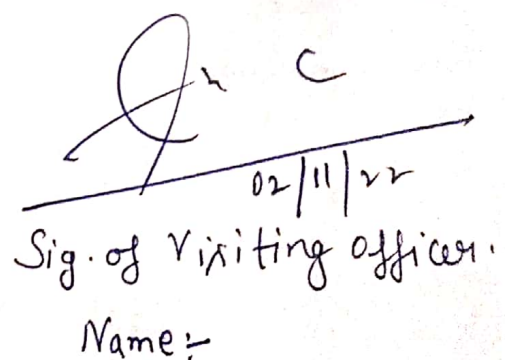 02/11/22
Sig. of Visiting Officer.
Name:-